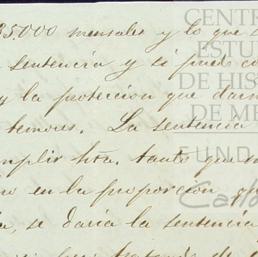 35.000 mensales y lo que
sentencia y si puede
y la proteccion que
temous. La sentencia
mplir hta. tanto que
en la proporcion, q
se daria la sentencia
CENTR
ESTU
DE HIS
DE ME
FUND